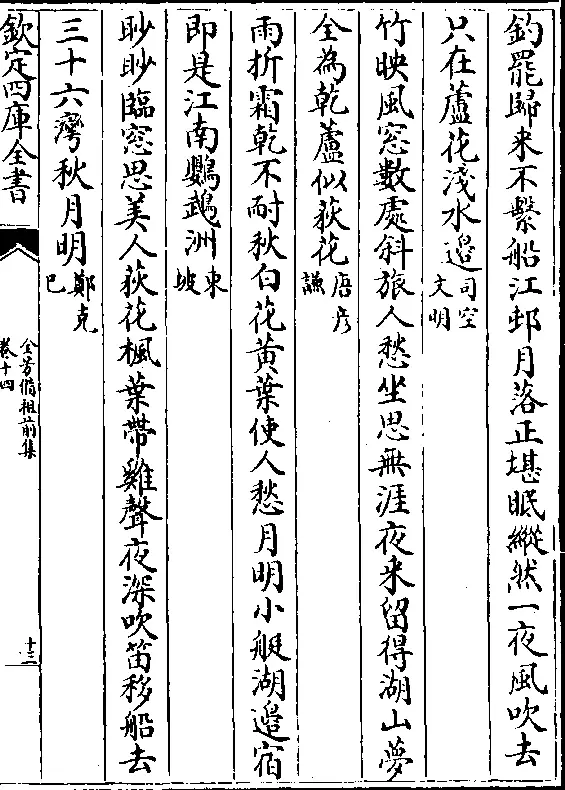 釣罷歸来不繫船江邨月落正堪眠縱然一夜風吹去
只在蘆花淺水邉司空文明
竹映風窓數處斜旅人愁坐思無涯夜来留得湖山夢
全為乾蘆似荻花唐彦謙
雨折霜乾不耐秋白花黄葉使人愁月明小艇湖邉宿
即是江南鸚鵡洲東坡
眇眇臨窓思美人荻花楓葉帶雞聲夜深吹笛移船去
三十六灣秋月明鄭克巳
欽定四庫全書
全芳備祖前集
卷十四
十三